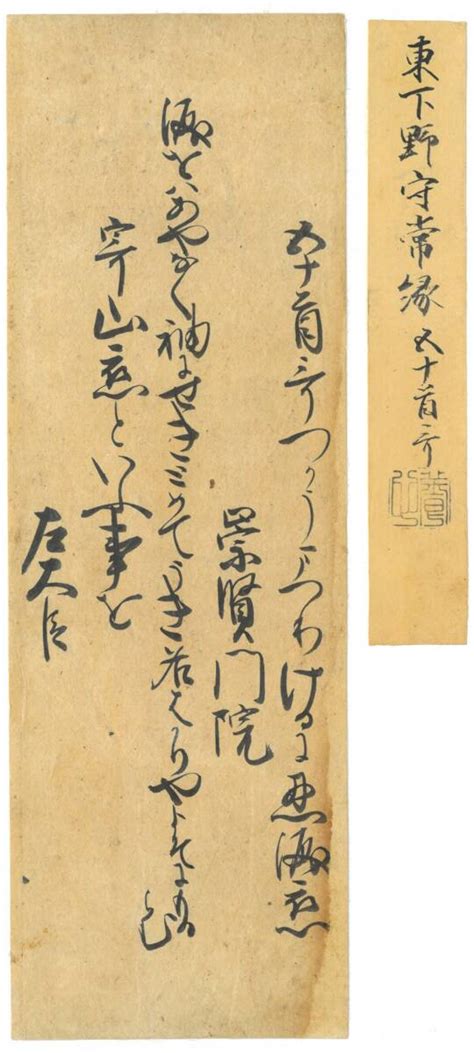 東下野守常縁 五十首哥
五十首哥つかうまつりけるに忍涙恋
崇賢門院
涙をはあやなく袖にせきこめてうき名はかりやよそにもる
寄山恋といふ事を
左大臣